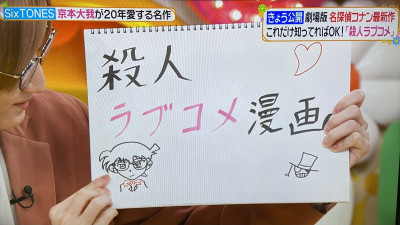 SixTONES 京本大我が20年愛する名作
きょう公開 劇場版 名探偵コナン最新作
これだけ知ってればOK!「殺人ラブコメ」
殺人
ラブコメ漫画